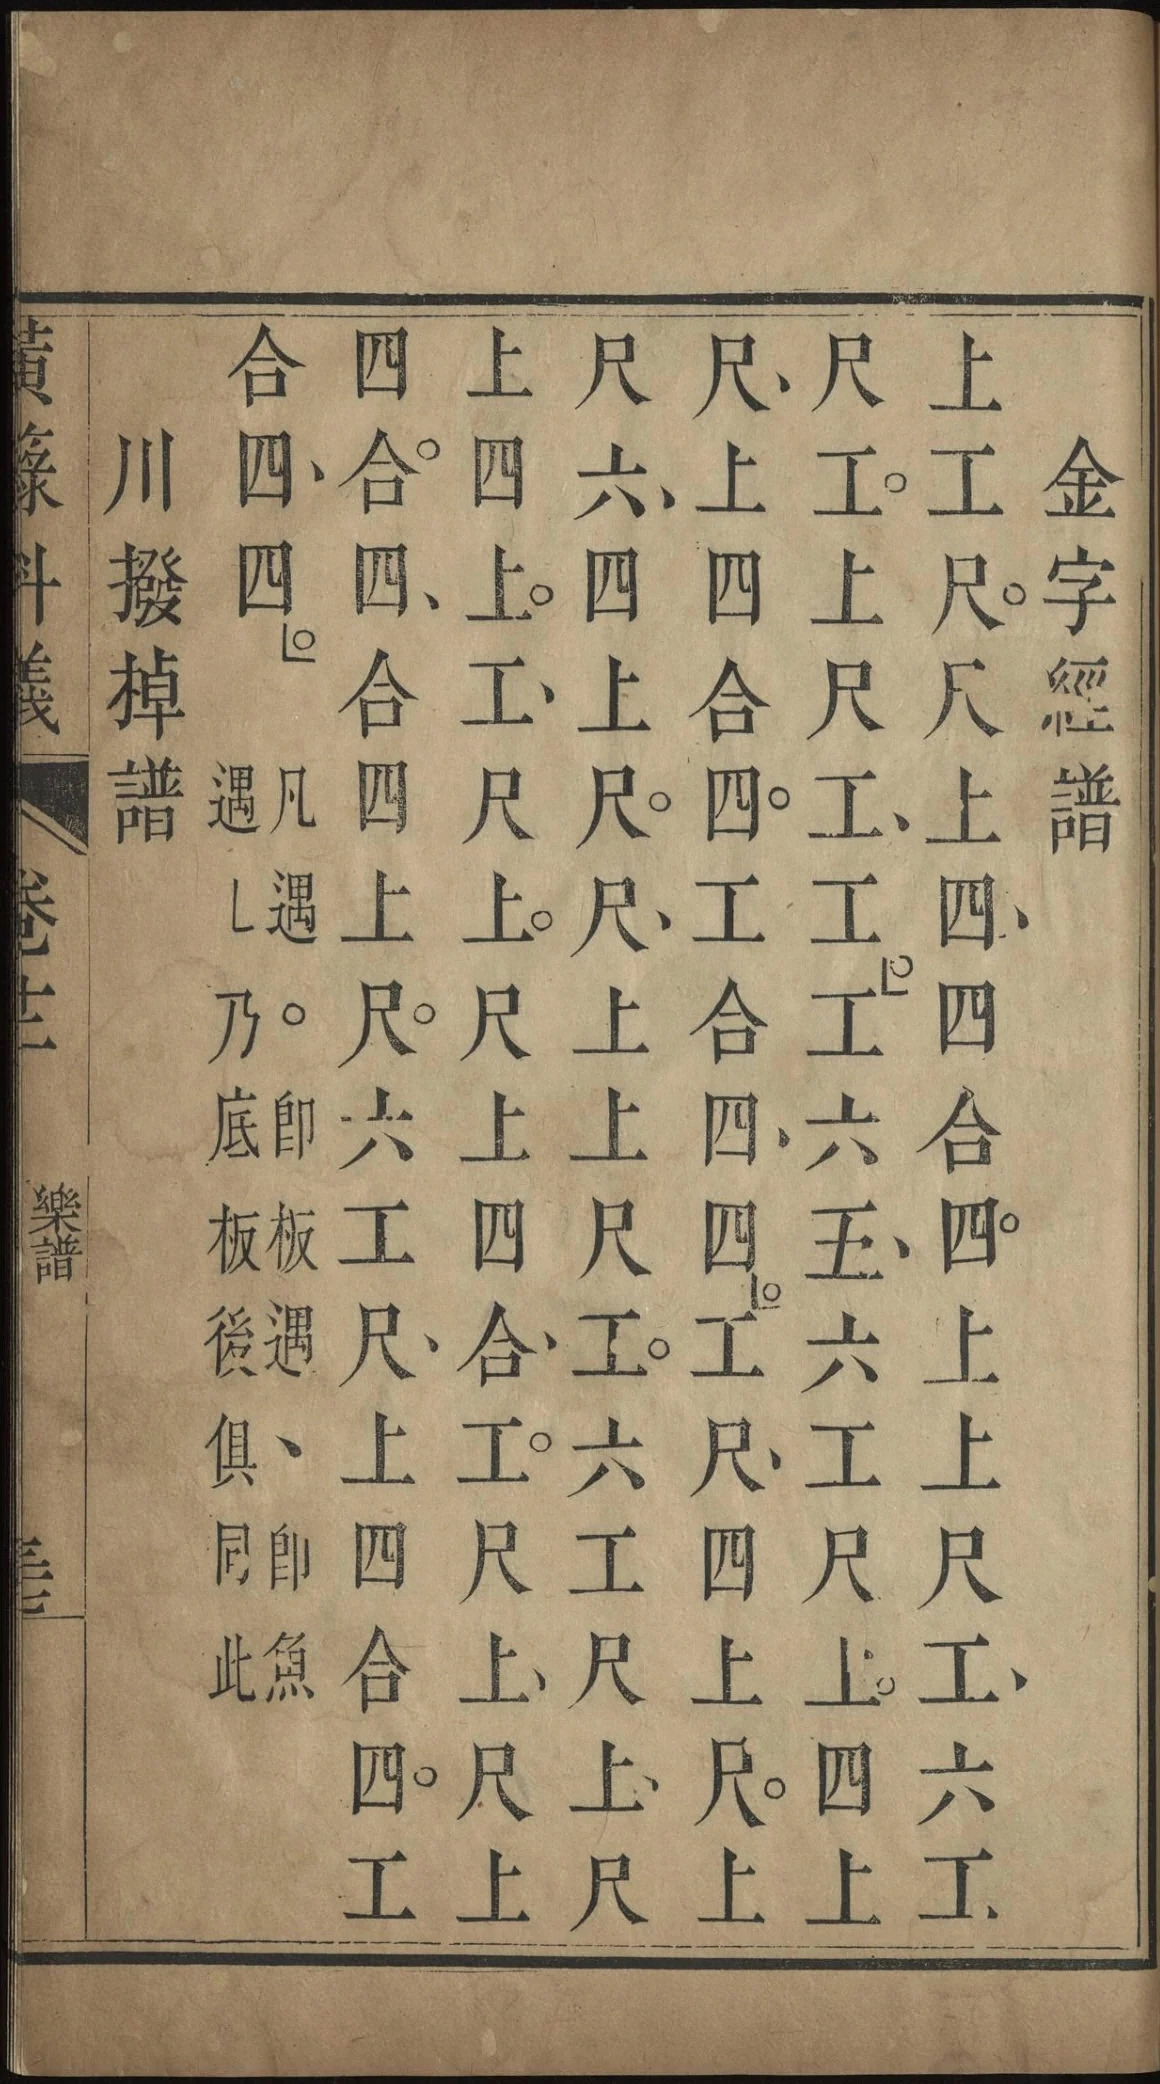 金字經譜
上工尺。尺上四、四合四。上上尺工、六工、
尺工。上尺工、工└。工六五、六工尺上。四上
尺、上四合四。工合四、四└。工尺、四上尺。上
尺六、四上尺。尺、上上尺工。六工尺上、尺
上四上。工、尺上。尺上四合、工。尺上、尺上
四合。四、合四上尺。六工尺、上四合四。工
合四、四└。
凡遇。即板遇、即魚
遇└乃底板後俱同此
川撥棹譜
黃籙科儀
卷十二
樂譜